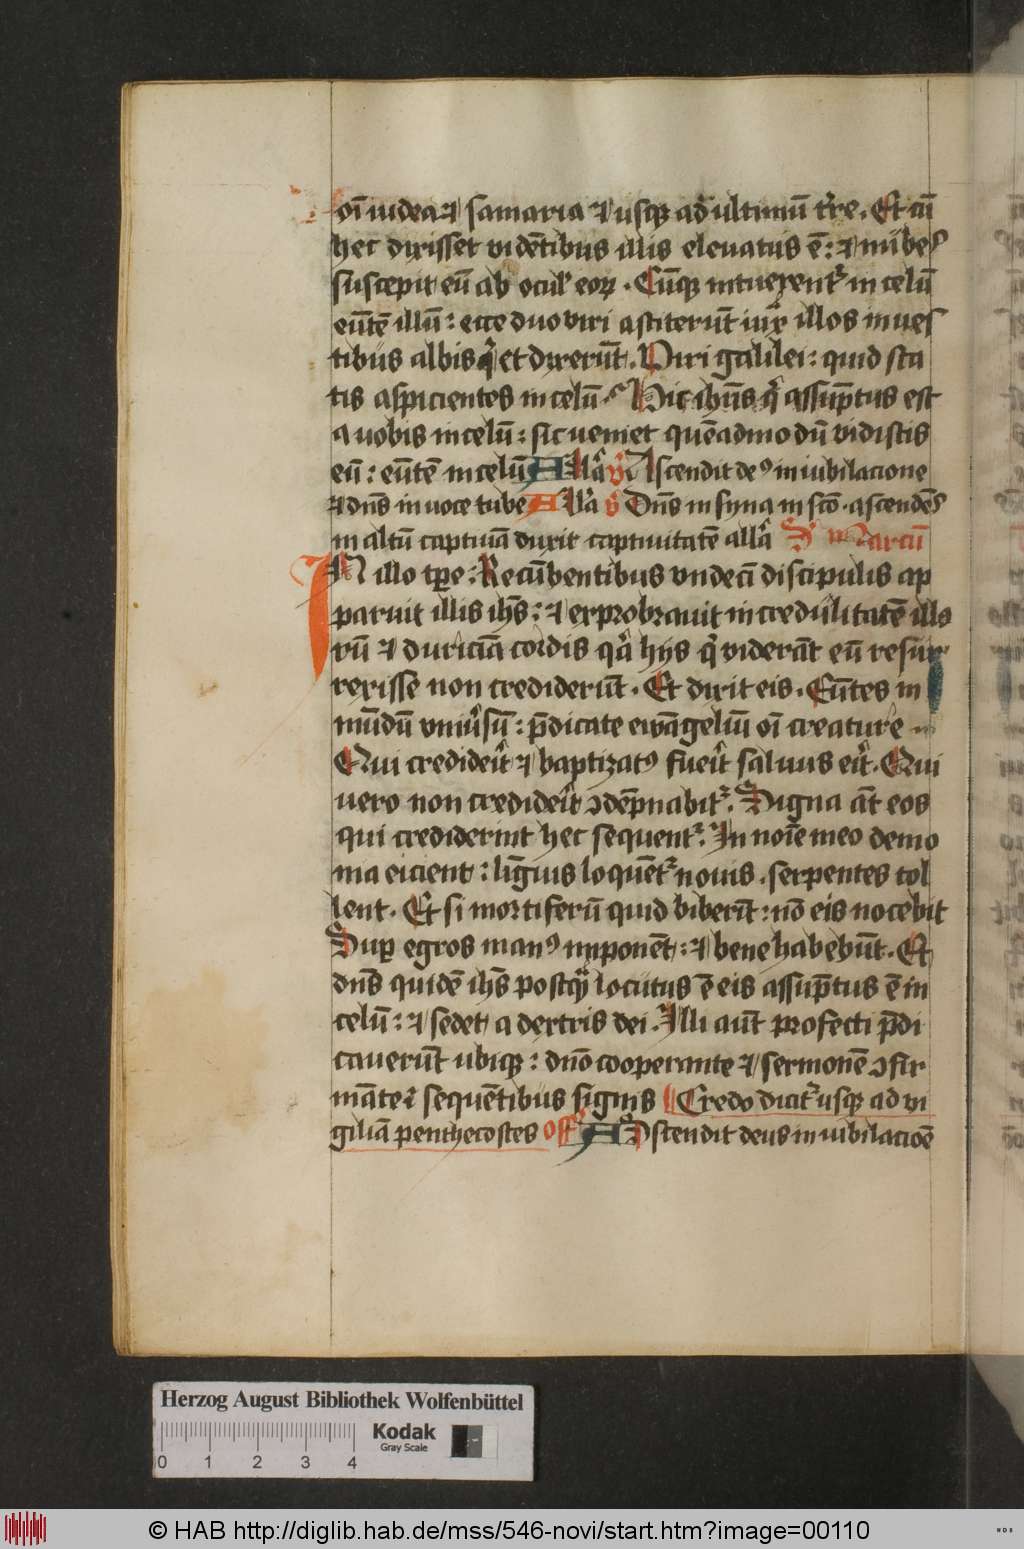 oī iudea ⁊ samaria ⁊ usqꝫ ad ultimū tr̄re. Et cū
hec dixisset vidētibus illis eleuatus ē: ⁊ nubes
suscepit eū ab ocul' eoꝝ. Cūqꝫ intuerent᷑ in celū
eūtē illū: ecce duo viri astiterūt iuxͣ illos in ves
tibus albis qͥ et dixerūt. Viri galilei: quid sta
tis aspicientes in celū. Hic ihūs qͥ assūptus est
a vobis in celū: sic veniet quēadmodū vidistis
eū: eūtē in celū Allā v̄ Ascendit deꝰ in iubilacione
⁊ dn̄s in voce tube Allā v̄ Dn̄s in syna in sc̄o. ascendēs
in altū captiuā duxit captiuitatē allā S' Marcū
IN illo tp̄re: Recūbentibus vndeci discipulis ap
paruit illis ih̄s: ⁊ exprobrauit incredulitatē illo
rū ⁊ duriciā cordis qͣ hijs qͥ viderāt eū resur
rexisse non crediderūt. Et dixit eis. Eūtes in
mūdū vniūsū: p̄dicate ewāgeliū oī creature
Qui credideīt ⁊ baptizatꝰ fueīt saluus eīt. Qui
vero non credideīt ꝯdēpnabit᷑. Signa āt eos
qui crediderint hec sequent᷑. In noīe meo demo
nia eicient: līguis loquēt᷑ nouis. serpentes tol
lent. Et si mortiferū quid biberīt: nō eis nocebit
Sup egros manꝰ imponēt: ⁊ bene habebūt. Et
dn̄s quidē ih̄s postqͣ locutus ē eis assūptus ē in
celū: ⁊ sedet a dextris dei. Illi aūt profecti p̄di
cauerūt ubiqꝫ: dn̄o cooperante ⁊ sermonē ꝯfir
māte sequētibus signis Credo dicit᷑ usqꝫ ad vi
giliā penthecostes off' Ascendit deus in iubilacioē
Herzog August Bibliothek Wolfenbüttel
Kodak
Gray Scale
0 1 2 3 4
© HAB http://diglib.hab.de/mss/546-novi/start.htm?image=00110